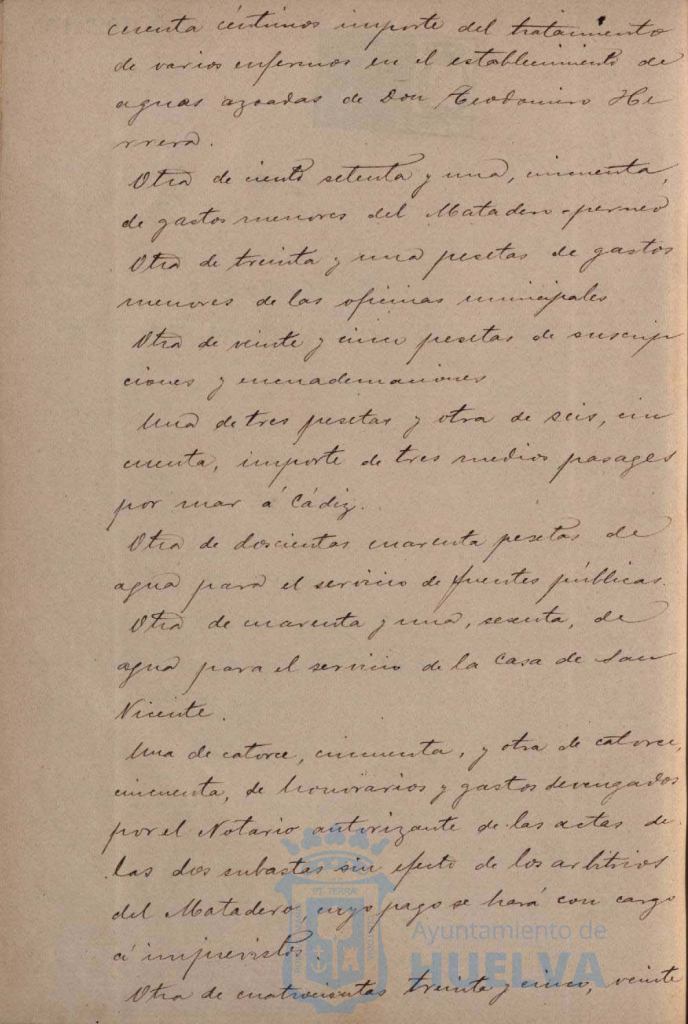 cuenta céntimos importe del tratamiento
de varios enfermos en el establecimiento de
aguas azoadas de Don Teodomiro He
rrera.
Otra de ciento setenta y una, cincuenta,
de gastos menores del Matadero-perneo
Otra de treinta y una pesetas de gastos
menores de las oficinas municipales
Otra de veinte y cinco pesetas de suscrip
ciones y encuadernaciones
Una de tres pesetas y otra de seis, cin
cuenta, importe de tres medios pasages
por mar á Cádiz.
Otra de doscientas cuarenta pesetas de
agua para el servicio de fuentes públicas.
Otra de cuarenta y una, sesenta, de
agua para el servicio de la Casa de San
Vicente.
Una de catorce, cincuenta, y otra de catorce,
cincuenta, de honorarios y gastos devengados
por el Notario autorizante de las actas de
las dos subastas sin efecto de los arbitrios
del Matadero, cuyo pago se hará con cargo
á imprevistos.
Otra de cuatrocientas treinta y cinco, veinte
Ayuntamiento de
HUELVA